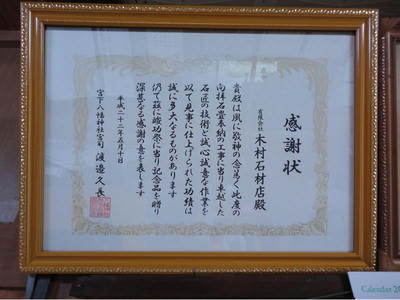 感謝状
有限会社 木村石材店殿
貴殿は夙に敬神の念篤く此度の
向拝石畳奉納の工事に当り卓越した
石匠の技術と誠心誠意な作業を
以て見事に仕上げられた功績は
誠に多大なるものがあります
仍て茲に竣功祭に当り記念品を贈り
深甚なる感謝の意を表します
平成二十二年五月十日
宮下八幡神社宮司 渡邉久長
Calendar 20